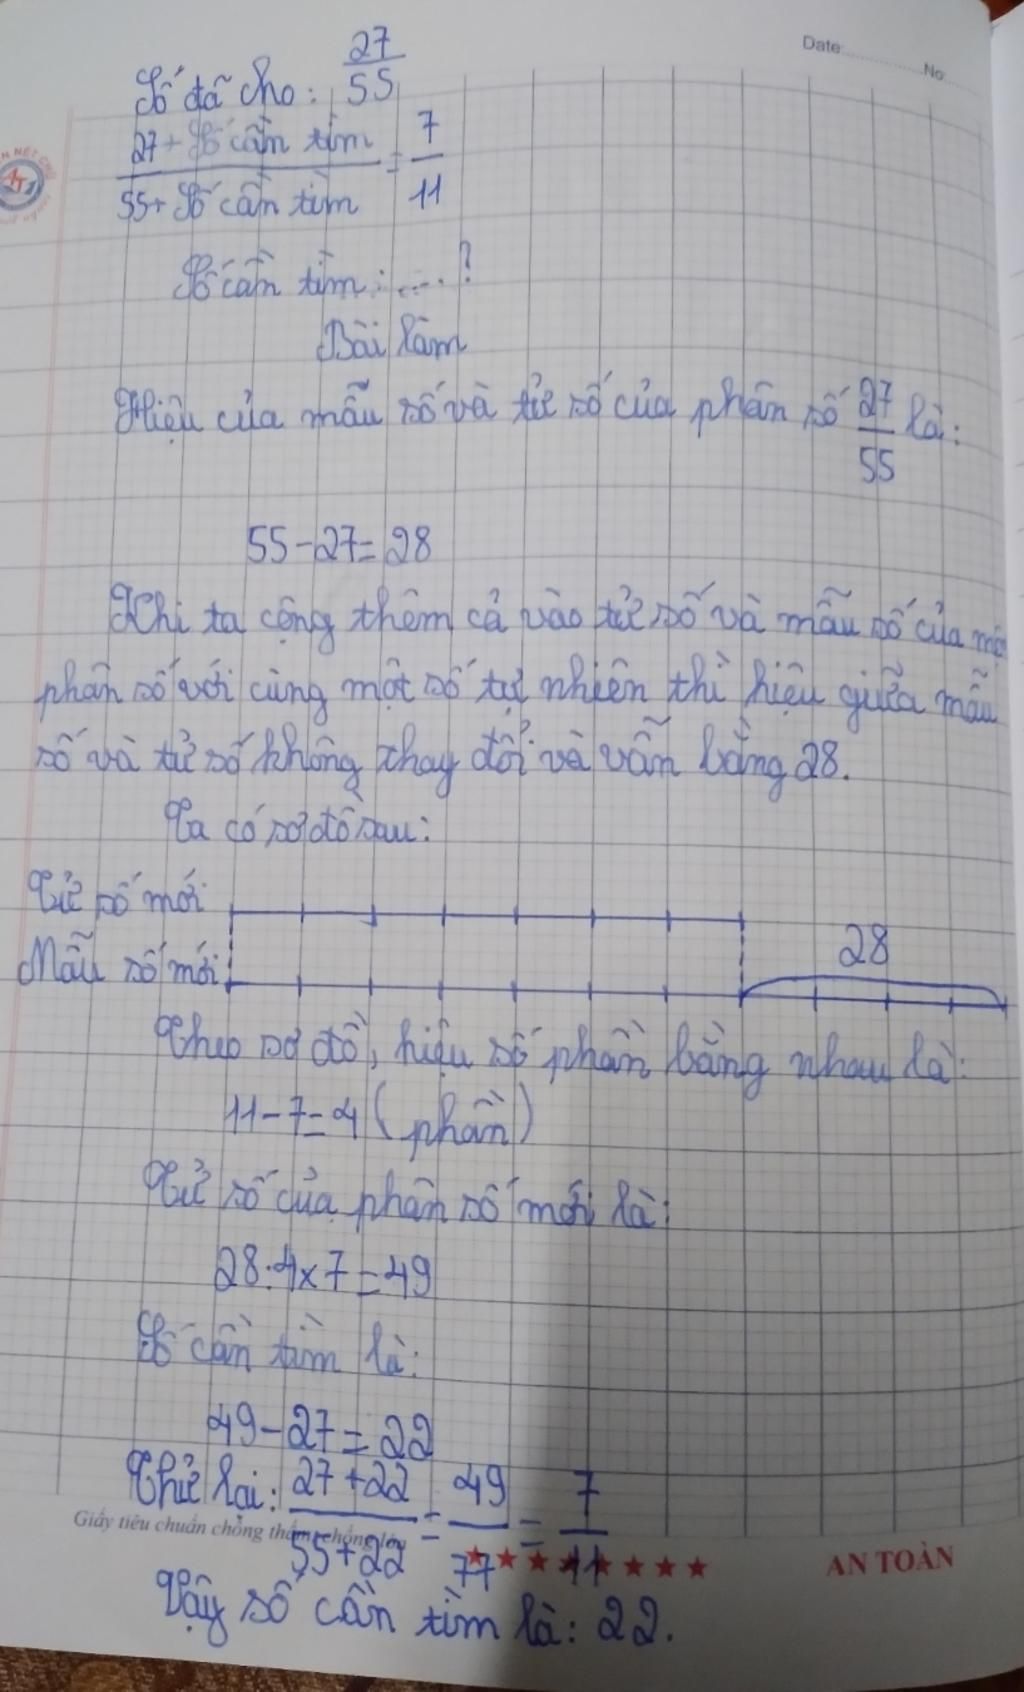 Date:............No:....
Số đã cho: 27/55
27 + Số cần tìm / 55 + Số cần tìm = 7/11
Số cần tìm: ....?
Bài làm
Hiệu của mẫu số và tử số của phân số 27/55 là:
55 - 27 = 28
Khi ta cộng thêm cả vào tử số và mẫu số của một
phân số với cùng một số tự nhiên thì hiệu giữa mẫu
số và tử số không thay đổi và vẫn bằng 28.
Ta có sơ đồ sau:
Tử số mới
28
Mẫu số mới
Theo sơ đồ, hiệu số phần bằng nhau là:
11 - 7 = 4 (phần)
Tử số của phân số mới là:
28 : 4 x 7 = 49
Số cần tìm là:
49 - 27 = 22
Thử lại: 27 + 22 / 55 + 22 = 49/77 = 7/11
Giấy tiêu chuẩn chống thấm, chống lóa
AN TOÀN
Vậy số cần tìm là: 22.